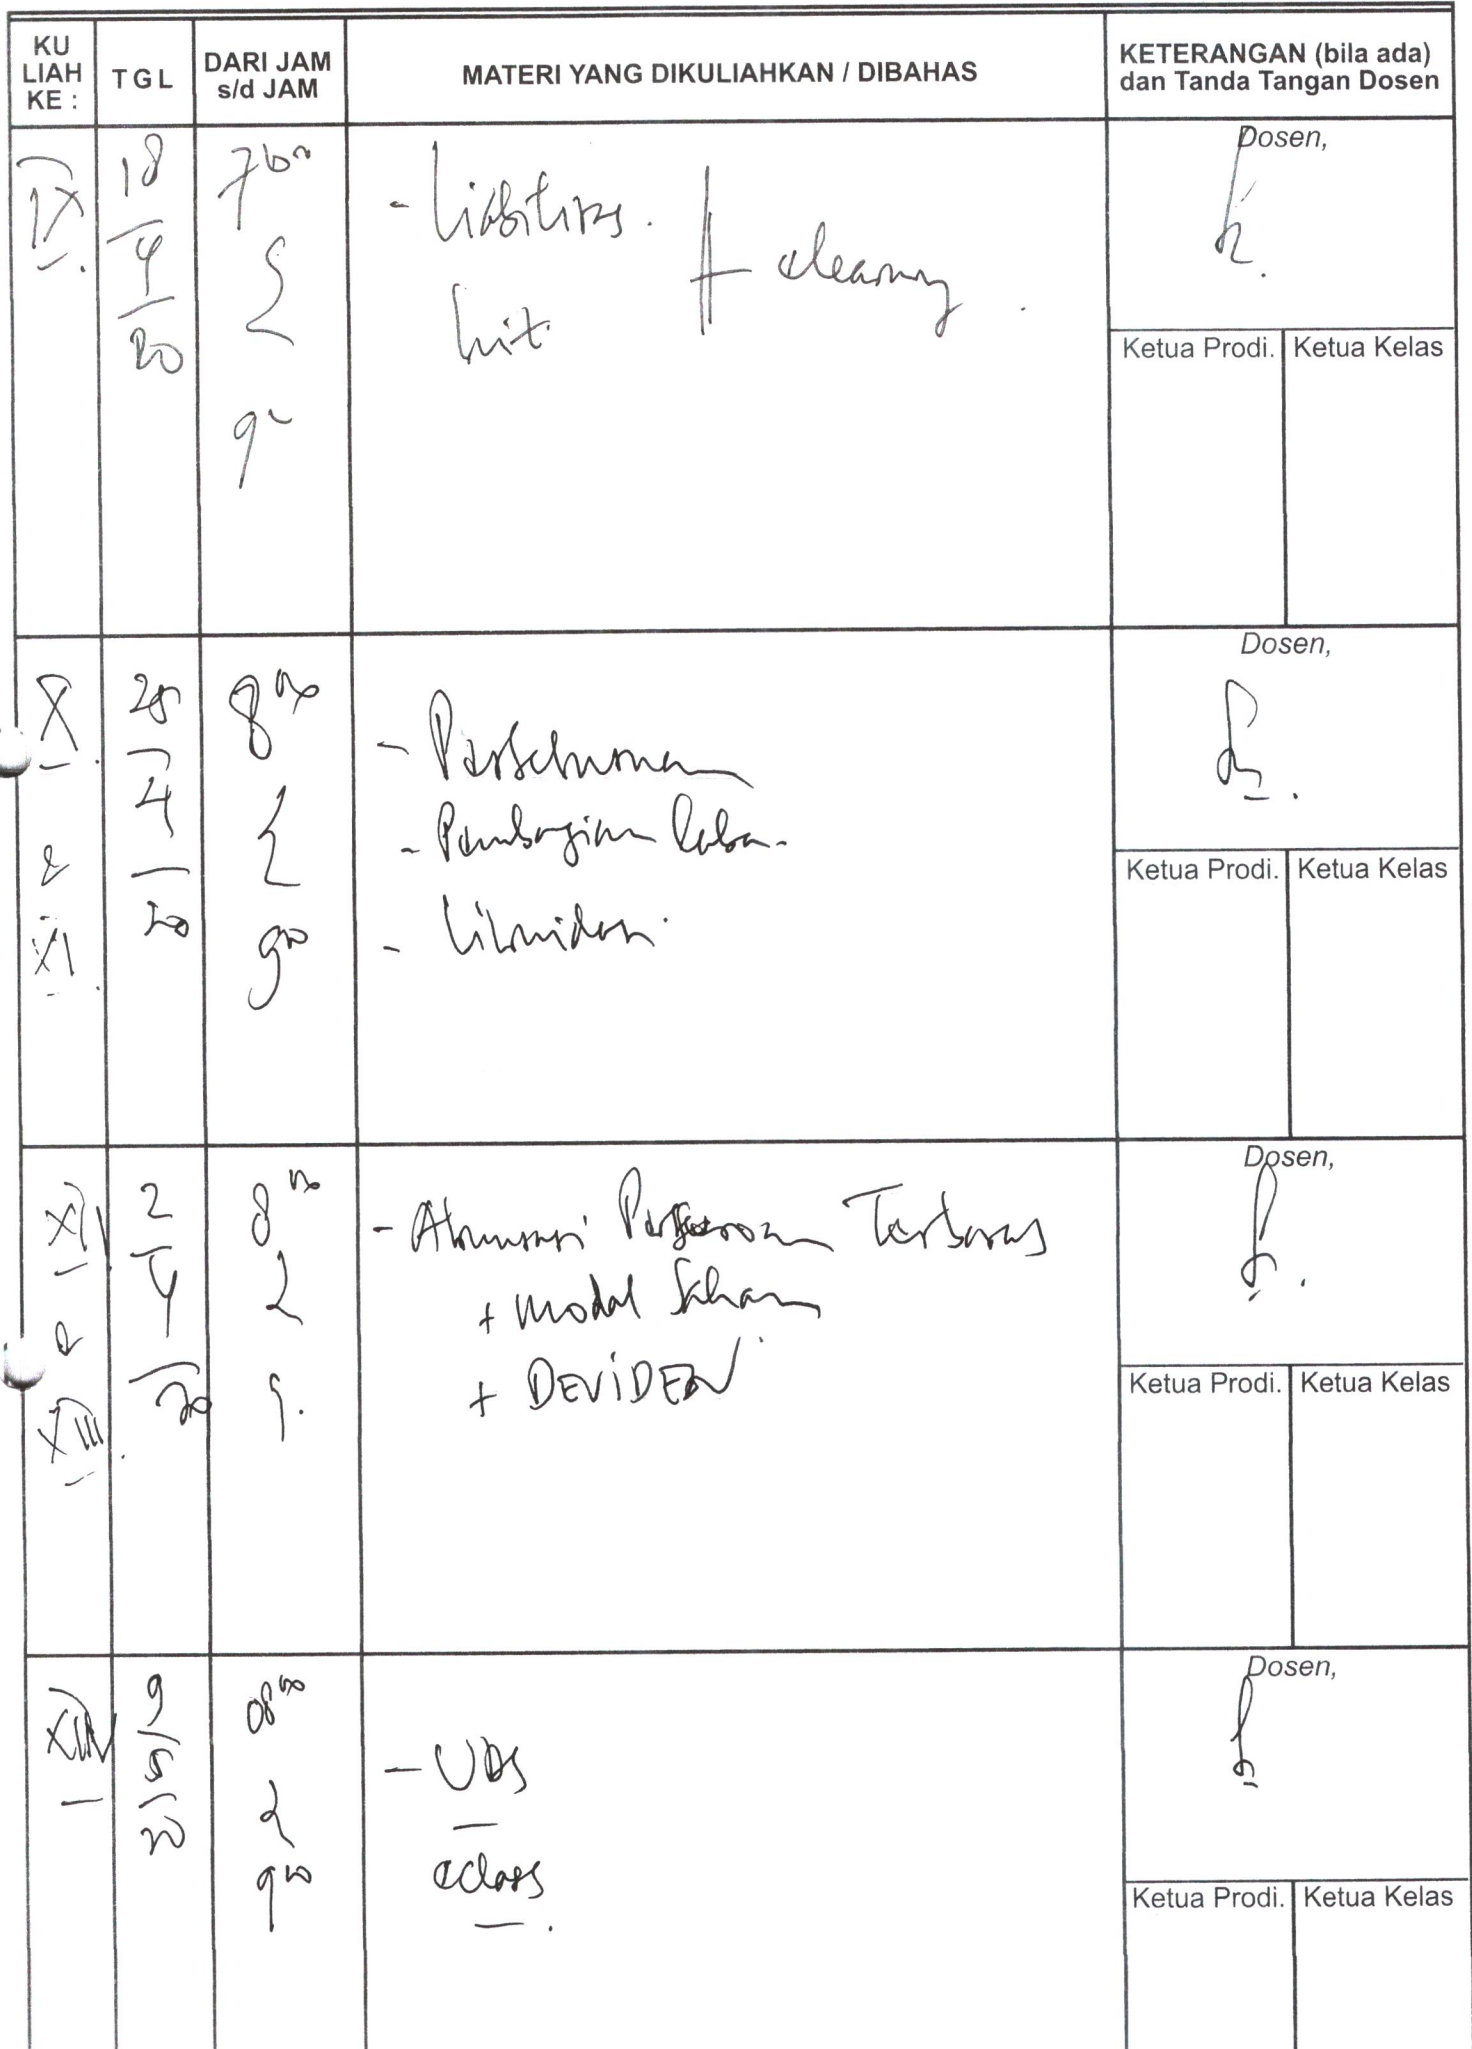 KU LIAH KE :
TGL
DARI JAM s/d JAM
MATERI YANG DIKULIAHKAN / DIBAHAS
KETERANGAN (bila ada) dan Tanda Tangan Dosen
IX.
18
4
20
9
- Liabilitas.
elearning
Dosen,
Ketua Prodi.
Ketua Kelas
X
&
XI
4
20
8 00
9 00
- Persekutuan
- Pembagian laba.
- Likuidasi
Dosen,
Ketua Prodi.
Ketua Kelas
XII
&
XIII.
2
20
8 00
9.
- Akuntansi Perseroan Terbatas
+ Modal Saham
+ DEVIDEN
Dosen,
Ketua Prodi.
Ketua Kelas
9
5
20
08 00
9 00
eclass
Dosen,
Ketua Prodi.
Ketua Kelas